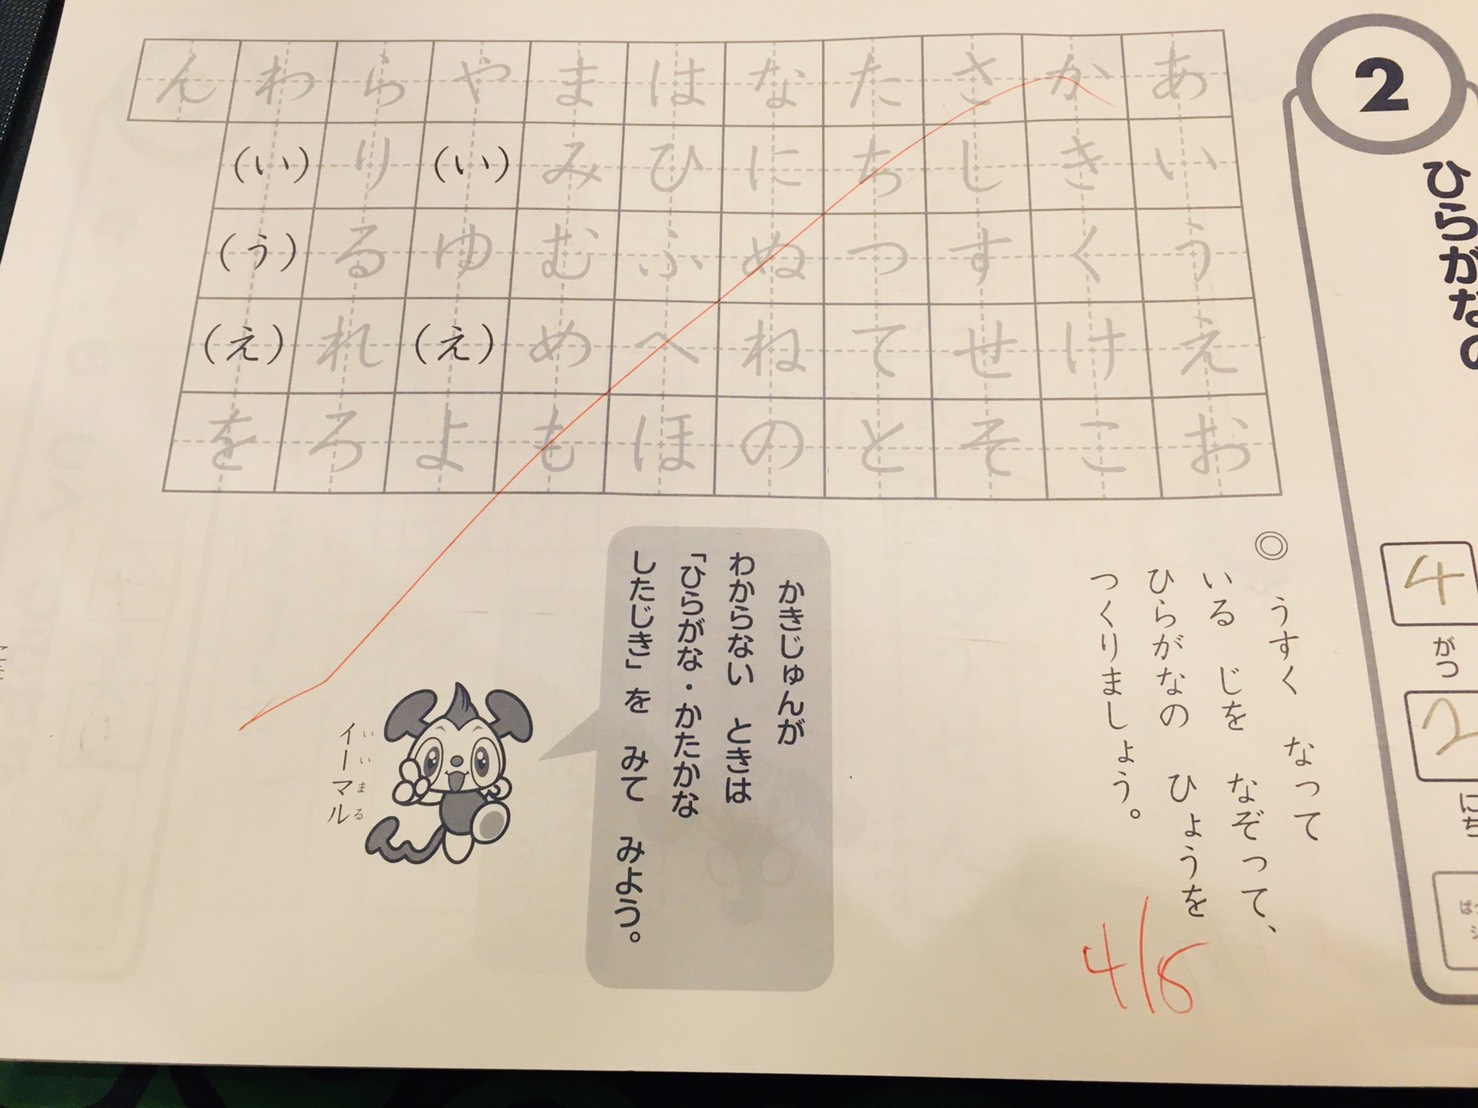 2
ひらがなの
4
がつ
2
にち
◎ うすく なって
いる じを なぞって、
ひらがなの ひょうを
つくりましょう。
4/8
あいうえお
かきくけこ
さしすせそ
たちつてと
なにぬねの
はひふへほ
まみむめも
や(い)ゆ(え)よ
らりるれろ
わ(い)(う)(え)を
ん
かきじゅんが
わからない ときは
「ひらがな・かたかな
したじき」を みて みよう。
いいまる
イーマル